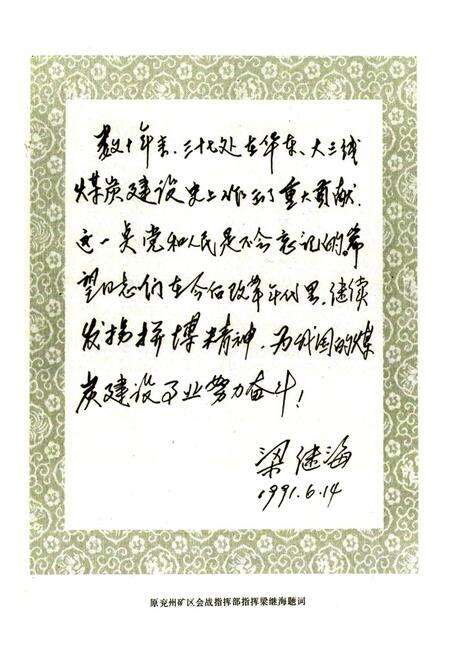 数十年来、三十七处在华东、大三线
煤炭建设史上作出了重大贡献.
这一点党和人民是不会忘记的.希
望同志们在今后改革年代里、继续
发扬拼搏精神、为我国的煤
炭建设事业努力奋斗！
梁继海
1991.6.14
原兖州矿区会战指挥部指挥梁继海题词